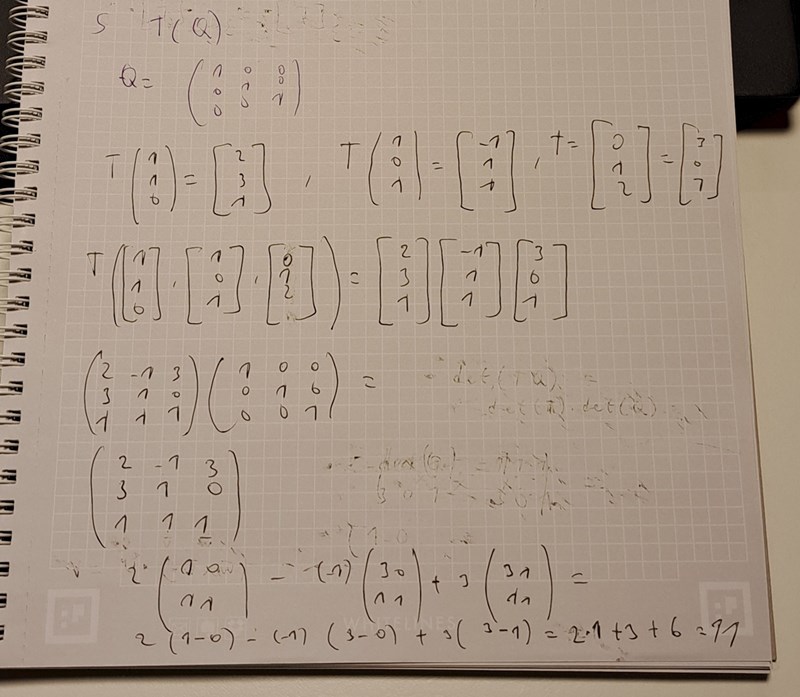 S T(Q)
Q= (1 0 0; 0 1 0; 0 0 1)
T(1; 1; 0) = [2; 3; 1], T(1; 0; 1) = [-1; 1; 1], T= [0; 1; 2] = [3; 0; 1]
T([1; 1; 0], [1; 0; 1], [0; 1; 2]) = [2; 3; 1] [-1; 1; 1] [3; 0; 1]
(2 -1 3; 3 1 0; 1 1 1) (1 0 0; 0 1 0; 0 0 1) =
(2 -1 3; 3 1 0; 1 1 1)
2 (1 0; 1 1) - (-1) (3 0; 1 1) + 3 (3 1; 1 1) =
2 (1-0) - (-1) (3-0) + 3( 3-1) = 2·1 +3 + 6 = 11